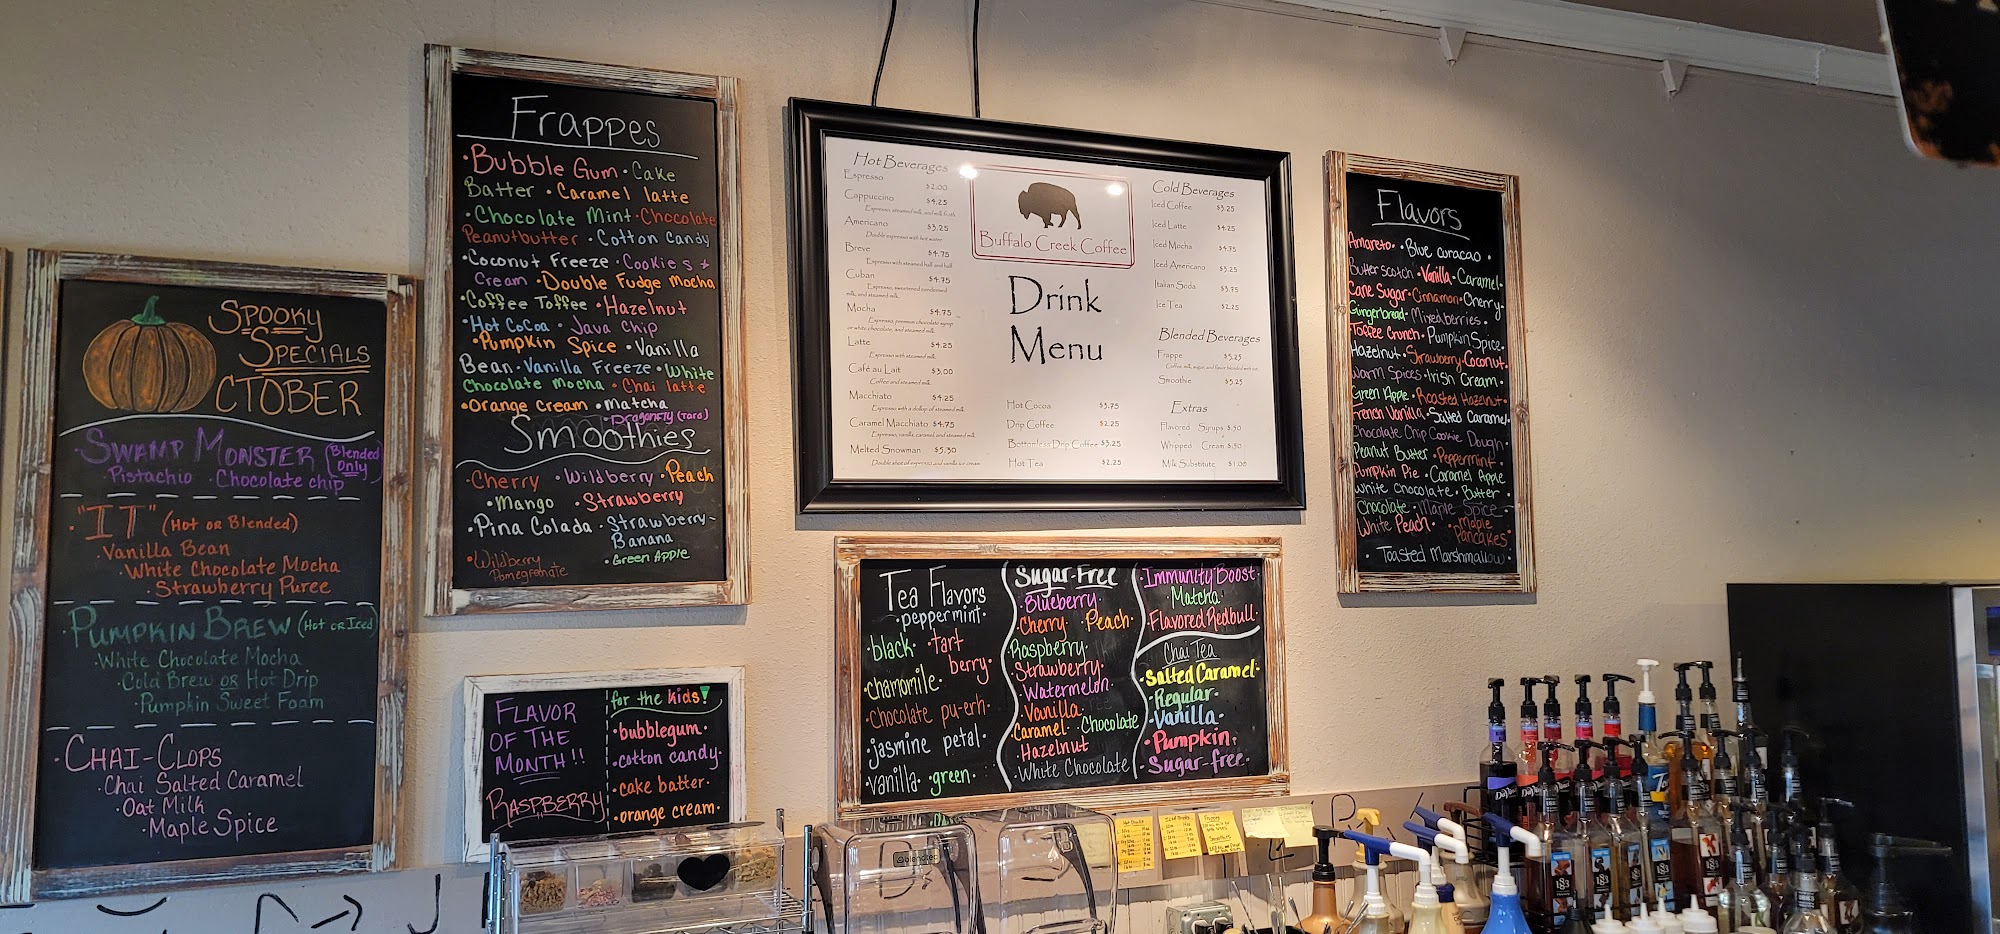 SPOOKY
SPECIALS
CTOBER
SWAMP MONSTER (Blended Only)
·Pistachio ·Chocolate chip
·"IT" (Hot or Blended)
·Vanilla Bean
·White Chocolate Mocha
·Strawberry Puree
·PUMPKIN BREW (Hot or Iced)
·White Chocolate Mocha
·Cold Brew or Hot Drip
·Pumpkin Sweet Foam
·CHAI-CLOPS
·Chai Salted Caramel
·Oat Milk
·Maple Spice
Frappes
·Bubble Gum ·Cake
Batter ·Caramel latte
·Chocolate Mint ·Chocolate
Peanutbutter ·Cotton Candy
·Coconut Freeze ·Cookies +
Cream ·Double Fudge Mocha
·Coffee Toffee ·Hazelnut
·Hot CoCoa ·Java Chip
·Pumpkin Spice ·Vanilla
Bean ·Vanilla Freeze ·White
Chocolate Mocha ·Chai latte
·Orange Cream ·Matcha
·Dragonfly (Taro)
Smoothies
·Cherry ·Wildberry ·Peach
·Mango ·Strawberry
·Pina Colada ·Strawberry-
Banana
·Wildberry
Pomegranate
·Green Apple
FLAVOR
OF THE
MONTH!!
RASPBERRY
for the kids!
·bubblegum·
·cotton candy·
·cake batter·
·orange cream·
Hot Beverages
Espresso $2.00
Cappuccino $4.25
Espresso, steamed milk, and milk froth
Americano $3.25
Double espresso with hot water
Breve $4.75
Espresso with steamed half and half
Cuban $4.75
Espresso, sweetened condensed
milk, and steamed milk.
Mocha $4.75
Espresso, premium chocolate syrup
or white chocolate, and steamed milk.
Latte $4.25
Espresso with steamed milk.
Café au Lait $3.00
Coffee and steamed milk.
Macchiato $4.25
Espresso with a dollop of steamed milk.
Caramel Macchiato $4.75
Espresso, vanilla, caramel and steamed milk.
Melted Snowman $5.50
Double shot of espresso and vanilla ice cream
Buffalo Creek Coffee
Drink
Menu
Hot Cocoa $3.75
Drip Coffee $2.25
Bottomless Drip Coffee $3.25
Hot Tea $2.25
Cold Beverages
Iced Coffee $3.25
Iced Latte $4.25
Iced Mocha $4.75
Iced Americano $3.25
Italian Soda $3.75
Ice Tea $2.25
Blended Beverages
Frappe $5.25
Coffee, milk, sugar, and flavor blended with ice.
Smoothie $5.25
Extras
Flavored Syrups $.50
Whipped Cream $.50
Milk Substitute $1.00
Tea Flavors
·peppermint·
·black· ·tart
berry·
·chamomile·
·chocolate pu-erh·
·jasmine petal·
·vanilla· ·green·
Sugar-Free
·Blueberry·
·Cherry· ·Peach·
Raspberry·
·Strawberry·
·Watermelon·
·Vanilla·
·Caramel ·Chocolate
·Hazelnut
·White Chocolate
·Immunity Boost·
·Matcha·
·Flavored Redbull·
Chai Tea
·Salted Caramel·
·Regular·
·Vanilla·
·Pumpkin·
·Sugar-free·
Flavors
Amareto· ·Blue curacao ·
Butterscotch ·Vanilla ·Caramel·
Cane Sugar ·Cinnamon ·Cherry·
Gingerbread· Mixed berries ·
·Toffee Crunch ·Pumpkin Spice·
Hazelnut ·Strawberry ·Coconut·
Warm Spices ·Irish Cream ·
Green Apple ·Roasted Hazelnut·
French Vanilla ·Salted Caramel·
Chocolate Chip Cookie Dough ·
Peanut Butter ·Peppermint ·
Pumpkin Pie ·Caramel Apple
White Chocolate · Butter ·
Chocolate ·Maple Spice·
White Peach· ·Maple
Pancakes·
·Toasted Marshmallow·
blendtec
1883
1883
1883